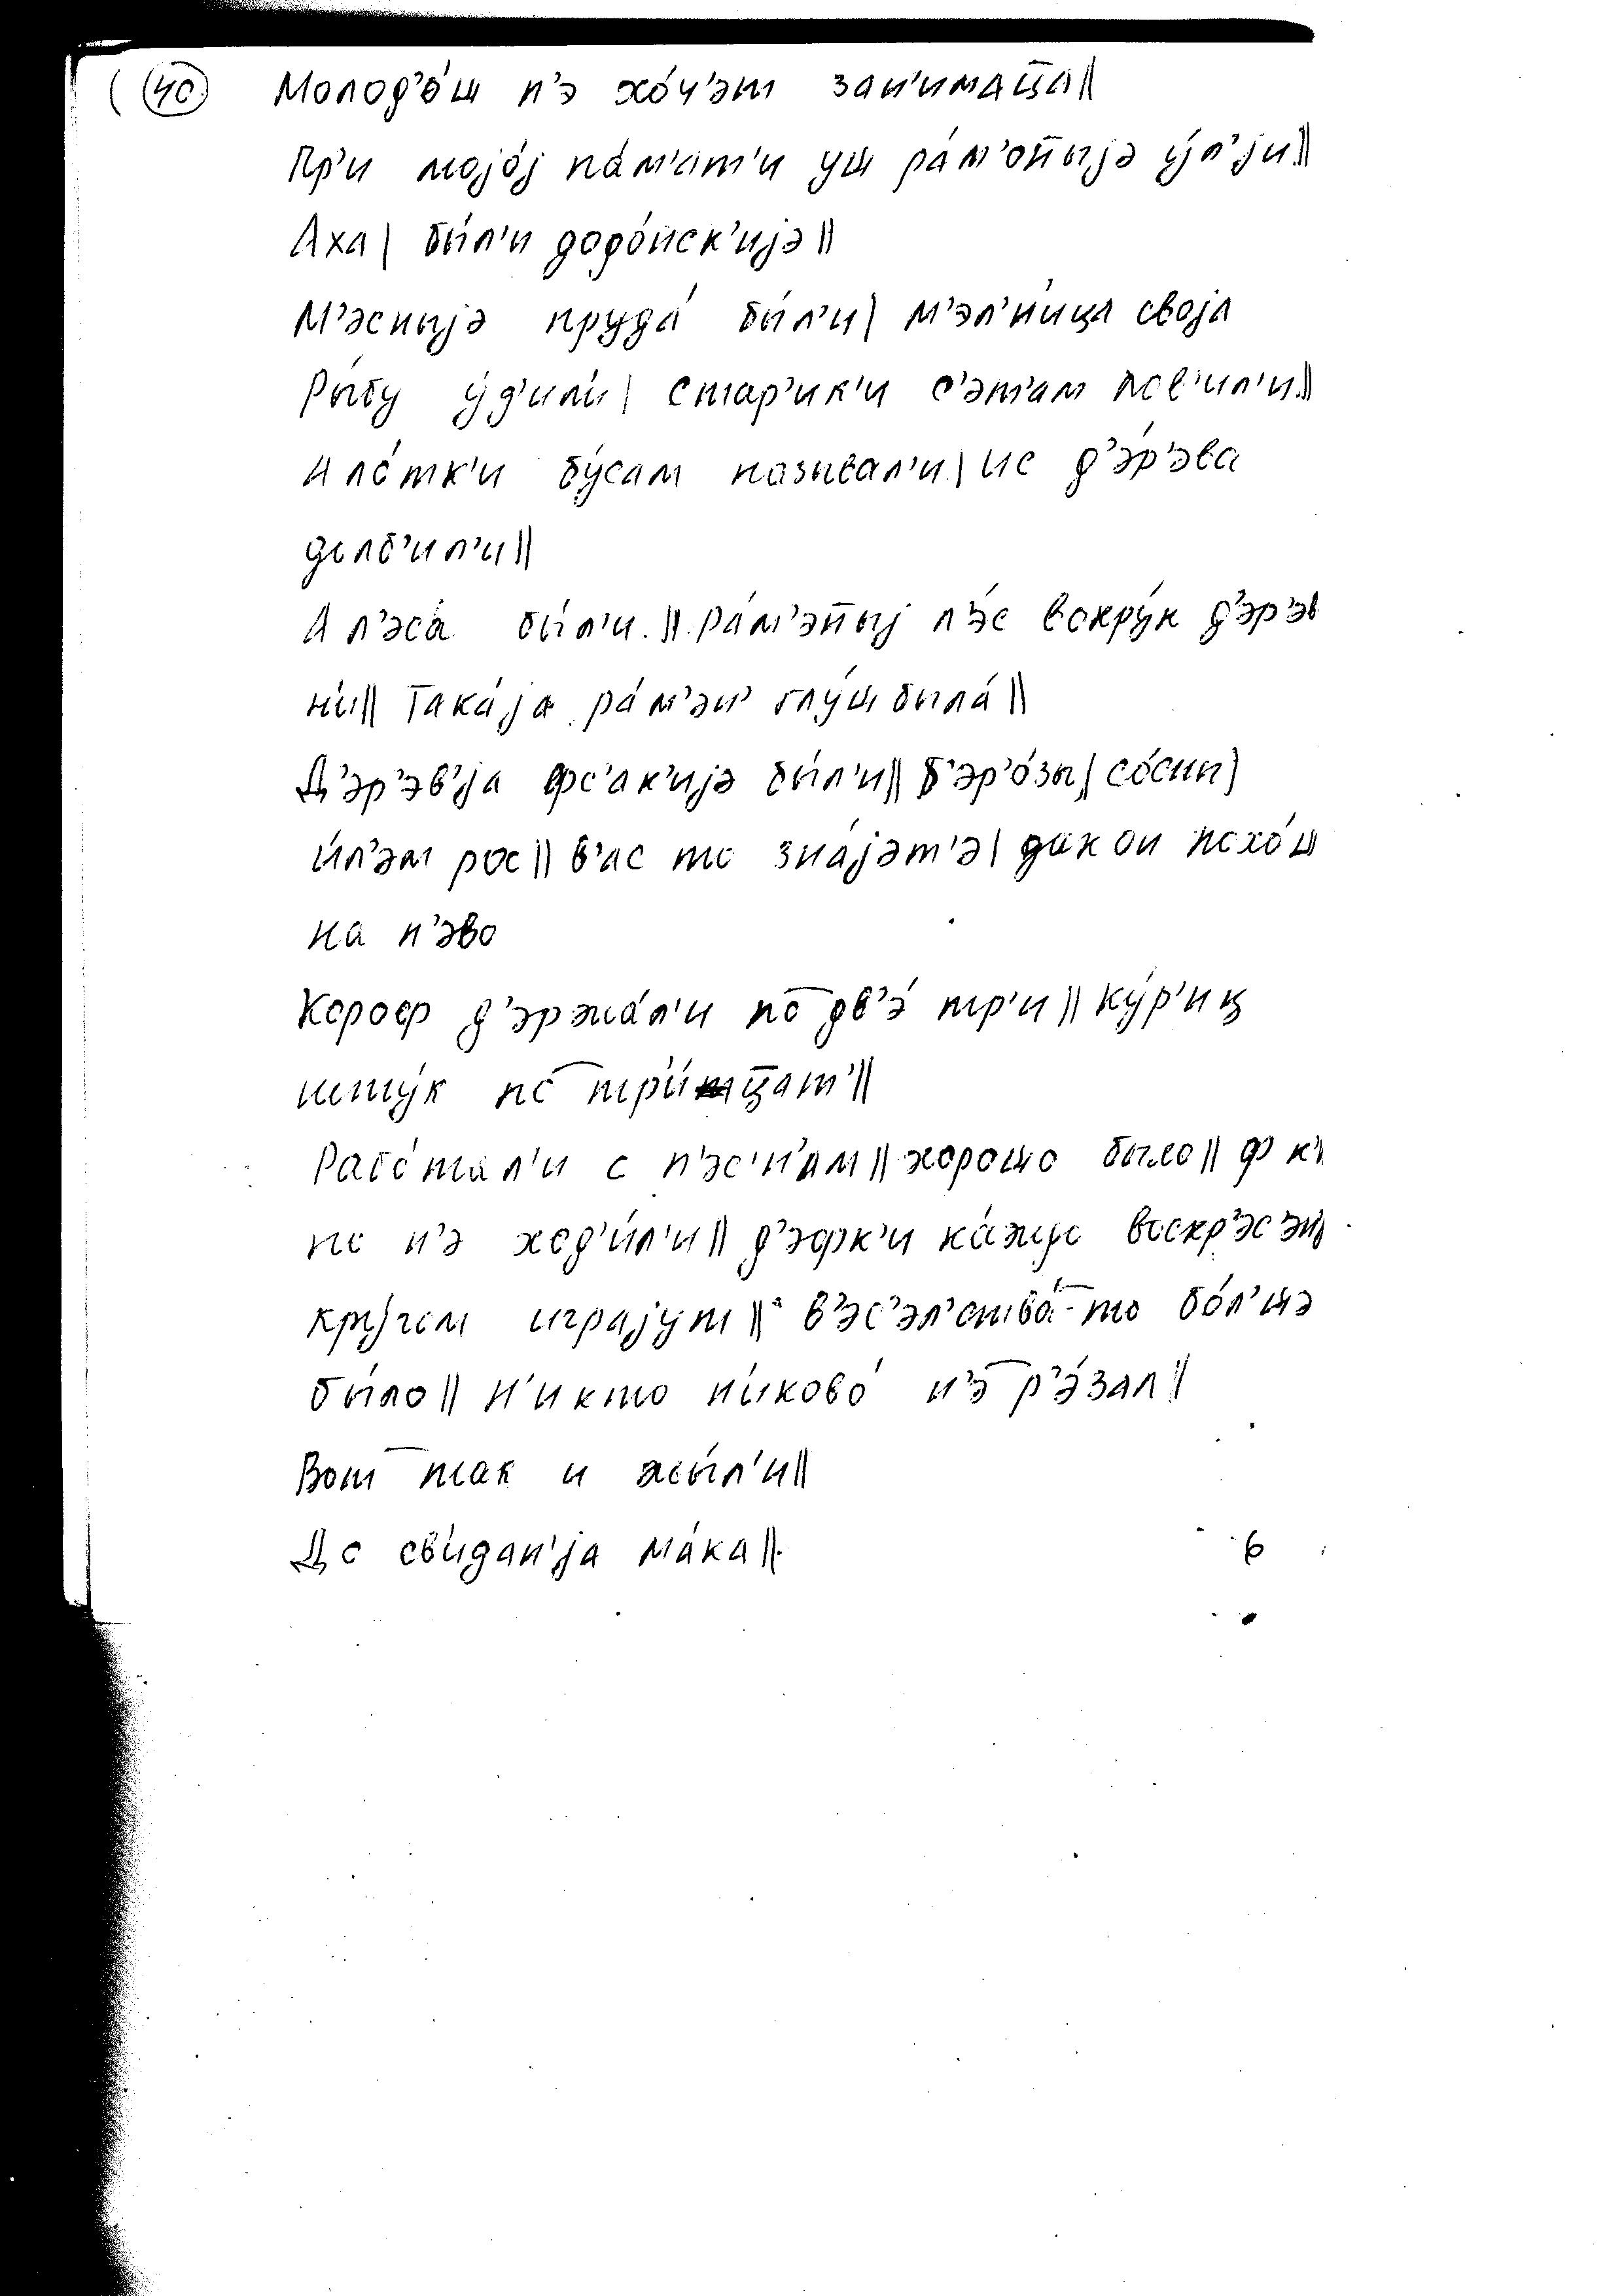 (40) Молод'о́ш н'э хо́ч'эт зан'има̄ца||
Пр'и мојо́ј па́м'ат'и уш ра́м'он̄ыјэ у́л'ји||
Аха| бы́л'и додо́нск'ијэ||
М'эсныјэ пруда́ бы́л'и| м'эл'н'ица своја
Ры́бу у́д'или| стар'ик'и с'эт'ам лов'ил'и||
А ло́тк'и бу́сам называл'и| ис д'э́р'эва
долб'ил'и||
А л'эса́ бы́л'и.|| ра́м'эн̄ыј л'э́с вокру́к д'эр'эв
н'и|| Така́ја ра́м'эн' глу́ш была́||
Д'эр'эв'ја фс'ак'ијэ бы́л'и|| б'эр'о́зы| со́сны|
и́л'эм рос|| в'ас то зна́јэт'э| дак он похо́ш
на н'эво
Короф д'эржа́л'и по дв'э́ тр'и|| ку́р'иц
шту́к по тр'ицат'||
Рабо́тал'и с п'эс'н'ам|| хорошо было|| ф к'и
но н'э ход'и́л'и|| д'эфк'и ка́жно воскр'эс'эн'ј
кру́гом играјут|| в'эс'эл'ства́-то бо́л'шэ
бы́ло|| Н'икто н'иково́ н'э р'э́зал||
Вот так и жы́л'и||
До свидан'ја ма́ка||